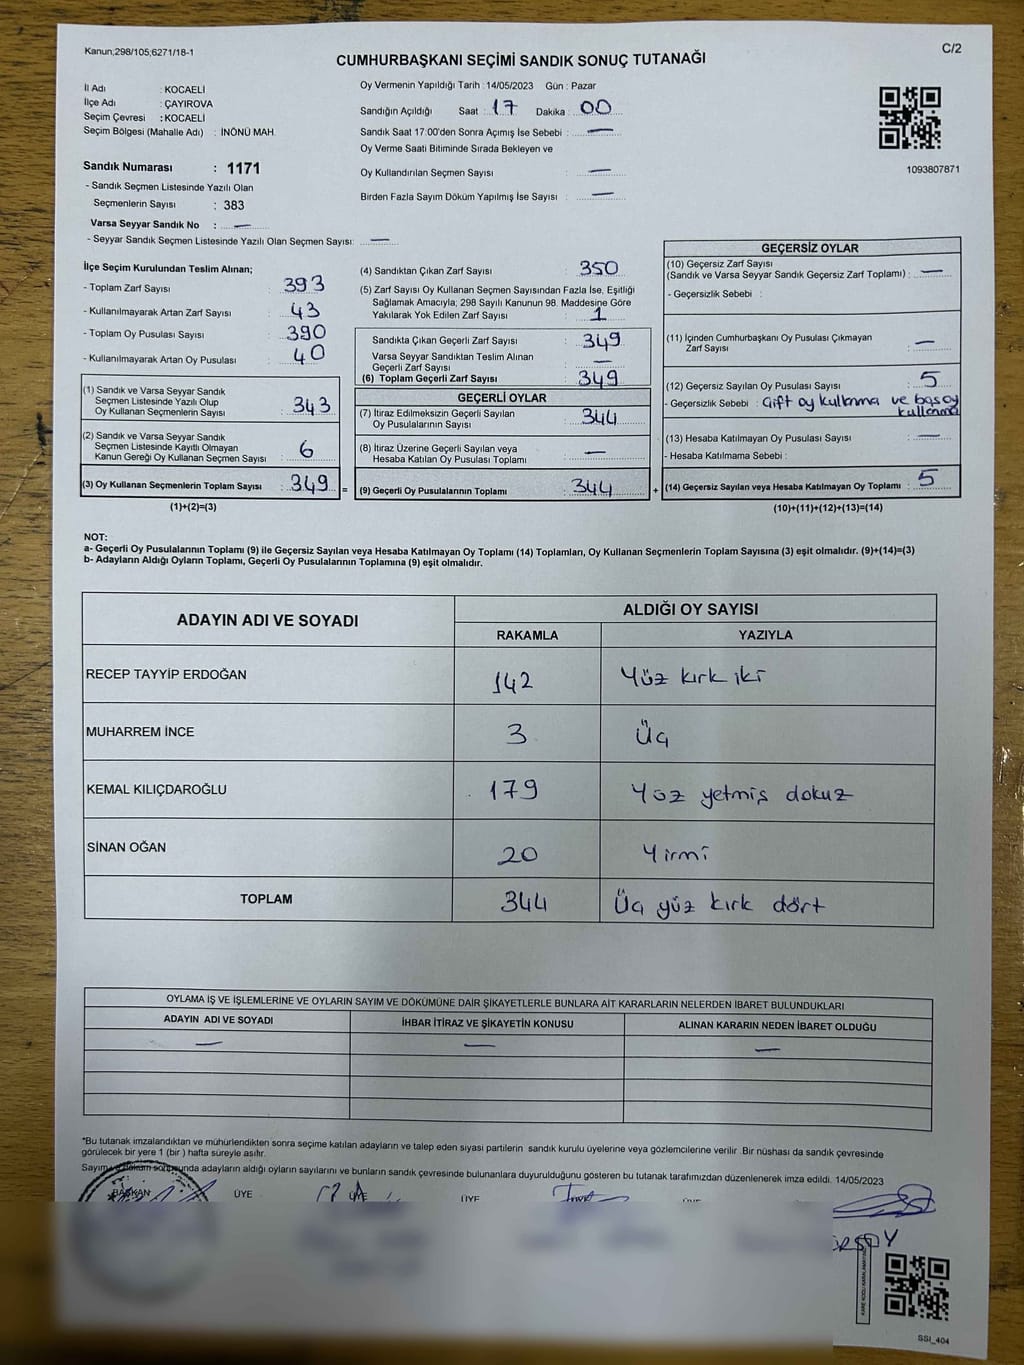 Kanun;298/105;6271/18-1
C/2
CUMHURBAŞKANI SEÇİMİ SANDIK SONUÇ TUTANAĞI
İl Adı : KOCAELİ
İlçe Adı : ÇAYIROVA
Seçim Çevresi : KOCAELİ
Seçim Bölgesi (Mahalle Adı) : İNÖNÜ MAH.
Sandık Numarası : 1171
- Sandık Seçmen Listesinde Yazılı Olan
Seçmenlerin Sayısı : 383
Varsa Seyyar Sandık No : —
- Seyyar Sandık Seçmen Listesinde Yazılı Olan Seçmen Sayısı: —
Oy Vermenin Yapıldığı Tarih : 14/05/2023 Gün : Pazar
Sandığın Açıldığı Saat : 17 Dakika : 00
Sandık Saat 17.00'den Sonra Açımış İse Sebebi : —
Oy Verme Saati Bitiminde Sırada Bekleyen ve
Oy Kullandırılan Seçmen Sayısı : —
Birden Fazla Sayım Döküm Yapılmış İse Sayısı : —
1093807871
İlçe Seçim Kurulundan Teslim Alınan;
- Toplam Zarf Sayısı : 393
- Kullanılmayarak Artan Zarf Sayısı : 43
- Toplam Oy Pusulası Sayısı : 390
- Kullanılmayarak Artan Oy Pusulası : 40
(1) Sandık ve Varsa Seyyar Sandık
Seçmen Listesinde Yazılı Olup
Oy Kullanan Seçmenlerin Sayısı : 343
(2) Sandık ve Varsa Seyyar Sandık
Seçmen Listesinde Kayıtlı Olmayan
Kanun Gereği Oy Kullanan Seçmen Sayısı : 6
(3) Oy Kullanan Seçmenlerin Toplam Sayısı : 349 =
(1)+(2)=(3)
(4) Sandıktan Çıkan Zarf Sayısı : 350
(5) Zarf Sayısı Oy Kullanan Seçmen Sayısından Fazla İse, Eşitliği
Sağlamak Amacıyla; 298 Sayılı Kanunun 98. Maddesine Göre
Yakılarak Yok Edilen Zarf Sayısı : 1
Sandıkta Çıkan Geçerli Zarf Sayısı : 349
Varsa Seyyar Sandıktan Teslim Alınan
Geçerli Zarf Sayısı : —
(6) Toplam Geçerli Zarf Sayısı : 349
GEÇERLİ OYLAR
(7) İtiraz Edilmeksizin Geçerli Sayılan
Oy Pusulalarının Sayısı : 344
(8) İtiraz Üzerine Geçerli Sayılan veya
Hesaba Katılan Oy Pusulası Toplamı : —
(9) Geçerli Oy Pusulalarının Toplamı : 344 +
GEÇERSİZ OYLAR
(10) Geçersiz Zarf Sayısı
(Sandık ve Varsa Seyyar Sandık Geçersiz Zarf Toplamı) : —
- Geçersizlik Sebebi :
(11) İçinden Cumhurbaşkanı Oy Pusulası Çıkmayan
Zarf Sayısı : —
(12) Geçersiz Sayılan Oy Pusulası Sayısı : 5
- Geçersizlik Sebebi : Çift oy kullanma ve boş oy
kullanma
(13) Hesaba Katılmayan Oy Pusulası Sayısı : —
- Hesaba Katılmama Sebebi :
(14) Geçersiz Sayılan veya Hesaba Katılmayan Oy Toplamı : 5
(10)+(11)+(12)+(13)=(14)
NOT:
a- Geçerli Oy Pusulalarının Toplamı (9) ile Geçersiz Sayılan veya Hesaba Katılmayan Oy Toplamı (14) Toplamları, Oy Kullanan Seçmenlerin Toplam Sayısına (3) eşit olmalıdır. (9)+(14)=(3)
b- Adayların Aldığı Oyların Toplamı, Geçerli Oy Pusulalarının Toplamına (9) eşit olmalıdır.
ADAYIN ADI VE SOYADI ALDIĞI OY SAYISI
RAKAMLA YAZIYLA
RECEP TAYYİP ERDOĞAN 142 Yüz kırk iki
MUHARREM İNCE 3 Üç
KEMAL KILIÇDAROĞLU 179 Yüz yetmiş dokuz
SİNAN OĞAN 20 Yirmi
TOPLAM 344 Üç yüz kırk dört
OYLAMA İŞ VE İŞLEMLERİNE VE OYLARIN SAYIM VE DÖKÜMÜNE DAİR ŞİKAYETLERLE BUNLARA AİT KARARLARIN NELERDEN İBARET BULUNDUKLARI
ADAYIN ADI VE SOYADI İHBAR İTİRAZ VE ŞİKAYETİN KONUSU ALINAN KARARIN NEDEN İBARET OLDUĞU
— — —
*Bu tutanak imzalandıktan ve mühürlendikten sonra seçime katılan adayların ve talep eden siyasi partilerin sandık kurulu üyelerine veya gözlemcilerine verilir. Bir nüshası da sandık çevresinde
görülecek bir yere 1 (bir ) hafta süreyle asılır.
Sayım ve döküm sonucunda adayların aldığı oyların sayılarını ve bunların sandık çevresinde bulunanlara duyurulduğunu gösteren bu tutanak tarafımızdan düzenlenerek imza edildi. 14/05/2023
BAŞKAN ÜYE ÜYE ÜYE
SSI_404